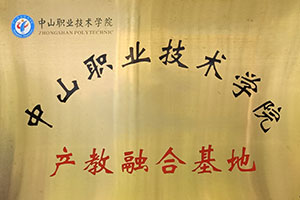 中山职业技术学院
ZHONGSHAN POLYTECHNIC
中山职业技术学院
产教融合基地